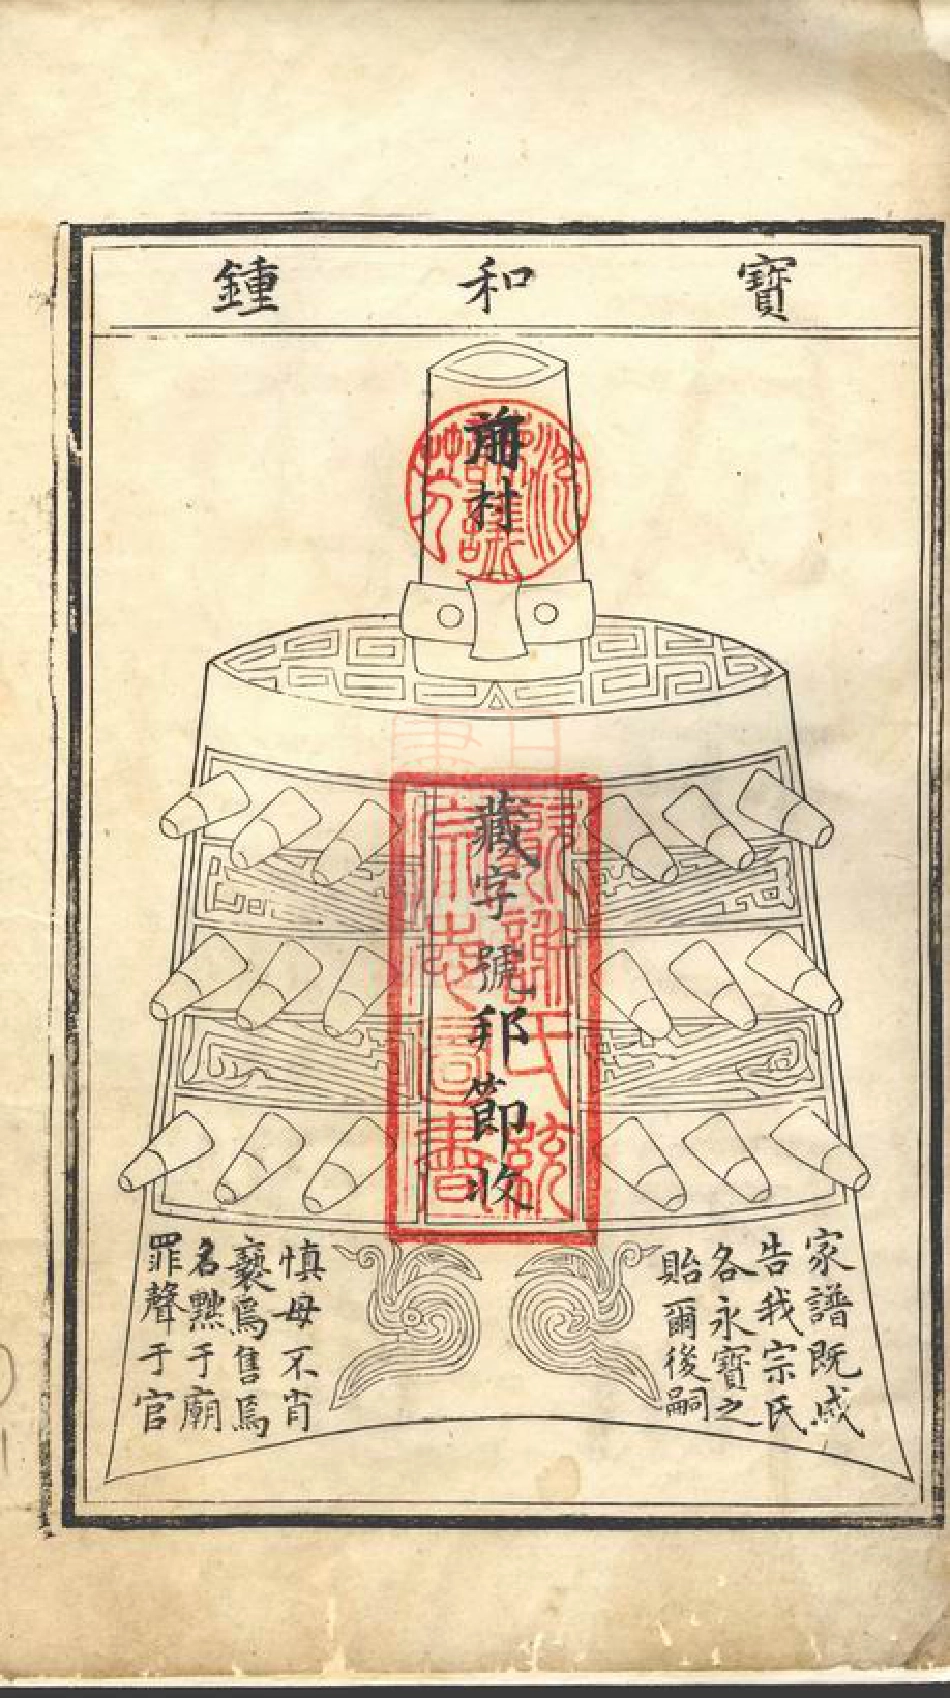 寶和鍾
前村
藏字號邦節收
家譜既成
告我宗氏
各永寶之
貽爾後嗣
慎毋不肖
褻焉售焉
名黜于廟
罪聲于官